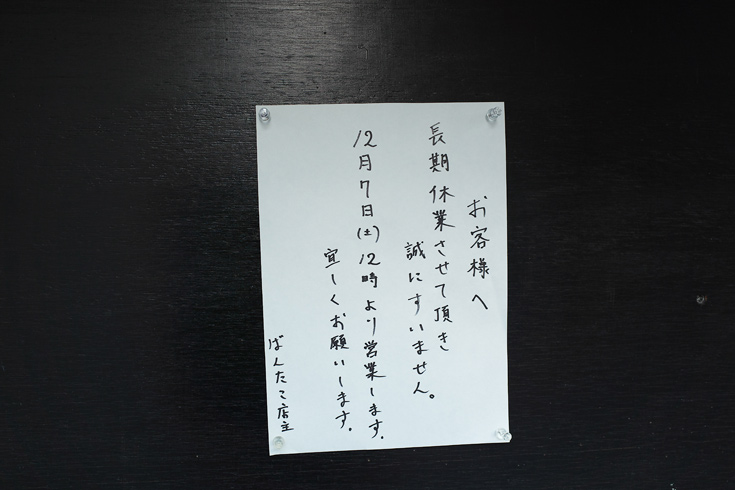 お客様へ
長期休業させて頂き
誠にすいません。
12月7日(土)12時より営業します.
宜しくお願いします.
ばんたこ店主